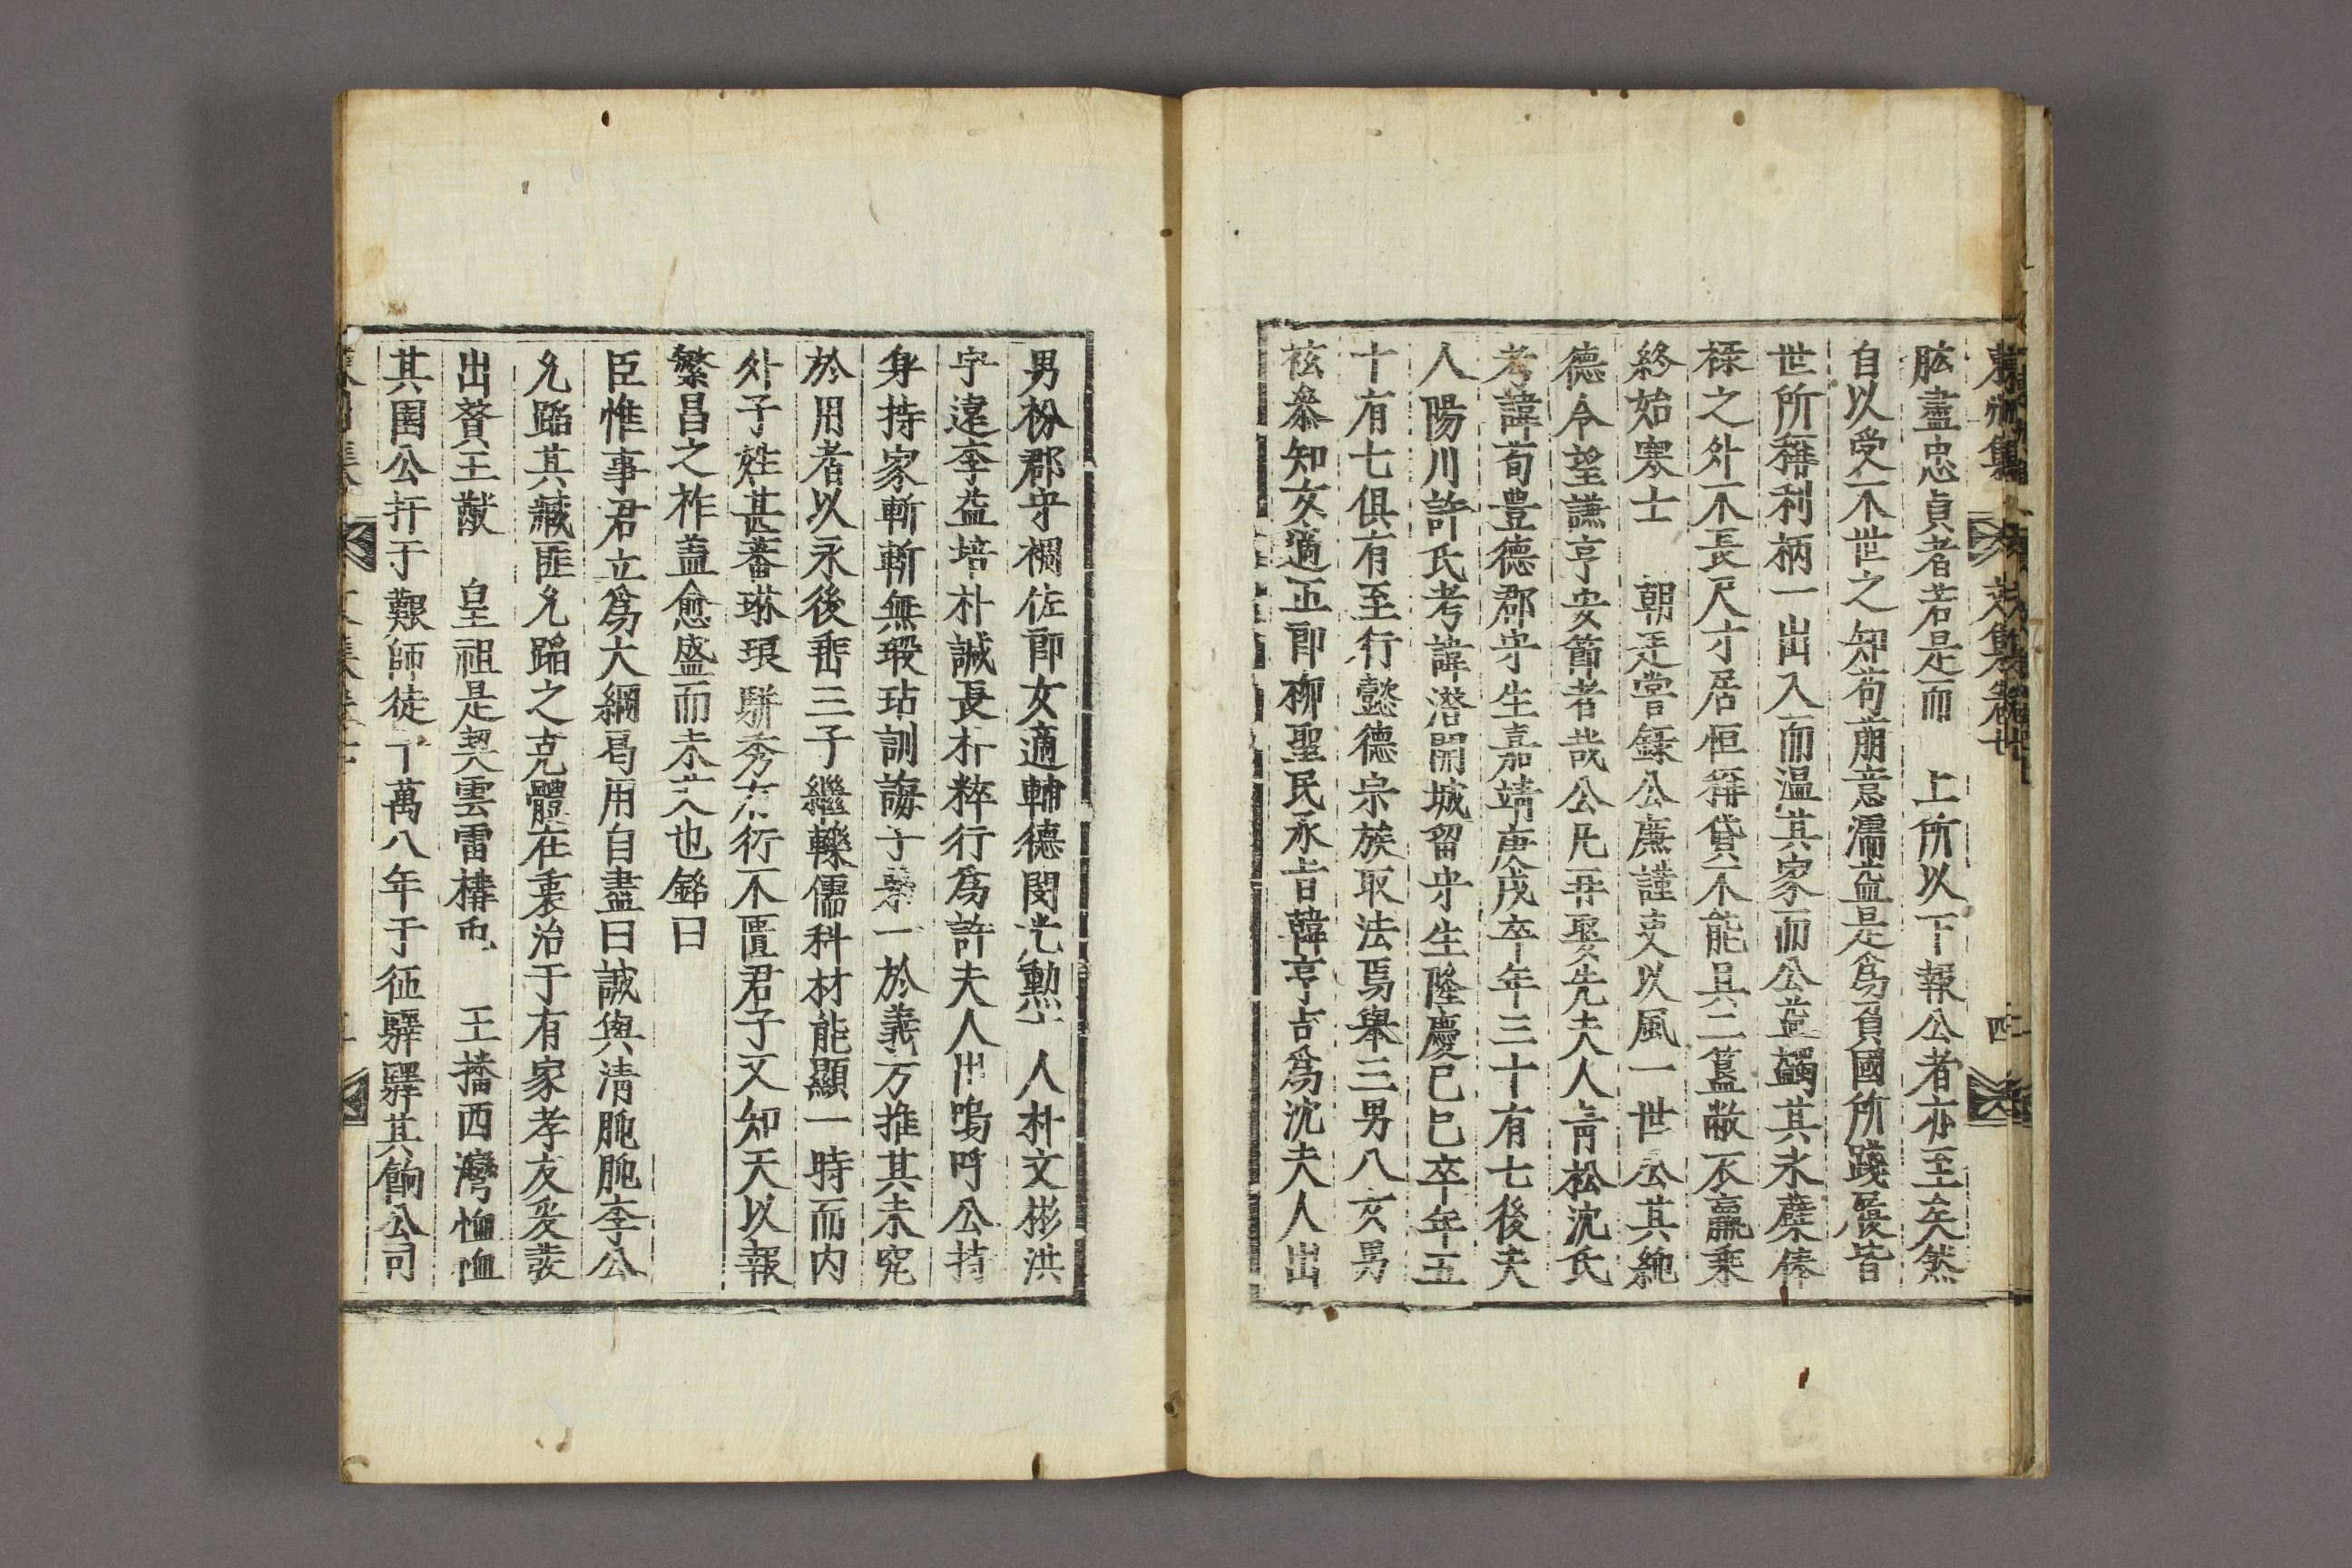 肱盡忠貞者若是而 上所以下報公者亦至矣然
自以受不世之知苟萠意濡益是爲負國所踐履皆
世所稱利柄一出入而温其家而公益蠲其氷蘗俸
祿之外不長尺寸居恒稱貸不能具二簋敝不羸乘
終始寒士 朝廷嘗錄公廉謹吏以風一世公其純
德令望謙亨安節者哉公凡再娶先夫人靑松沈氏
考諱荀豊德郡守生嘉靖庚戌卒年三十有七後夫
人陽川許氏考諱潜開城留守生隆慶己巳卒年五
十有七俱有至行懿德宗族取法焉舉三男八女男
䘵叅知女適正郎柳聖民承旨韓亨吉爲沈夫人出
男枌郡守裯佐郎女適輔德閔光勲士人朴文彬洪
宇遠李益培朴諴長朴粹行爲許夫人出嗚呼公持
身持家斬斬無瑕玷訓誨子弟一於義方推其未究
於用者以永後垂三子繼轢儒科材能顯一時而内
外子姓甚蕃琳琅騈秀方衍不匱君子又知天以報
繁昌之祚盖愈盛而未艾也銘曰
臣惟事君立爲大綱曷用自盡曰誠與清肫肫李公
允蹈其藏匪允蹈之克體在裏治于有家孝友爰發
出贊王猷 皇祖是契雲雷構屯 王播西灣恤恤
其圉公扞于艱師徒十萬八年于征驛驛其餉公司